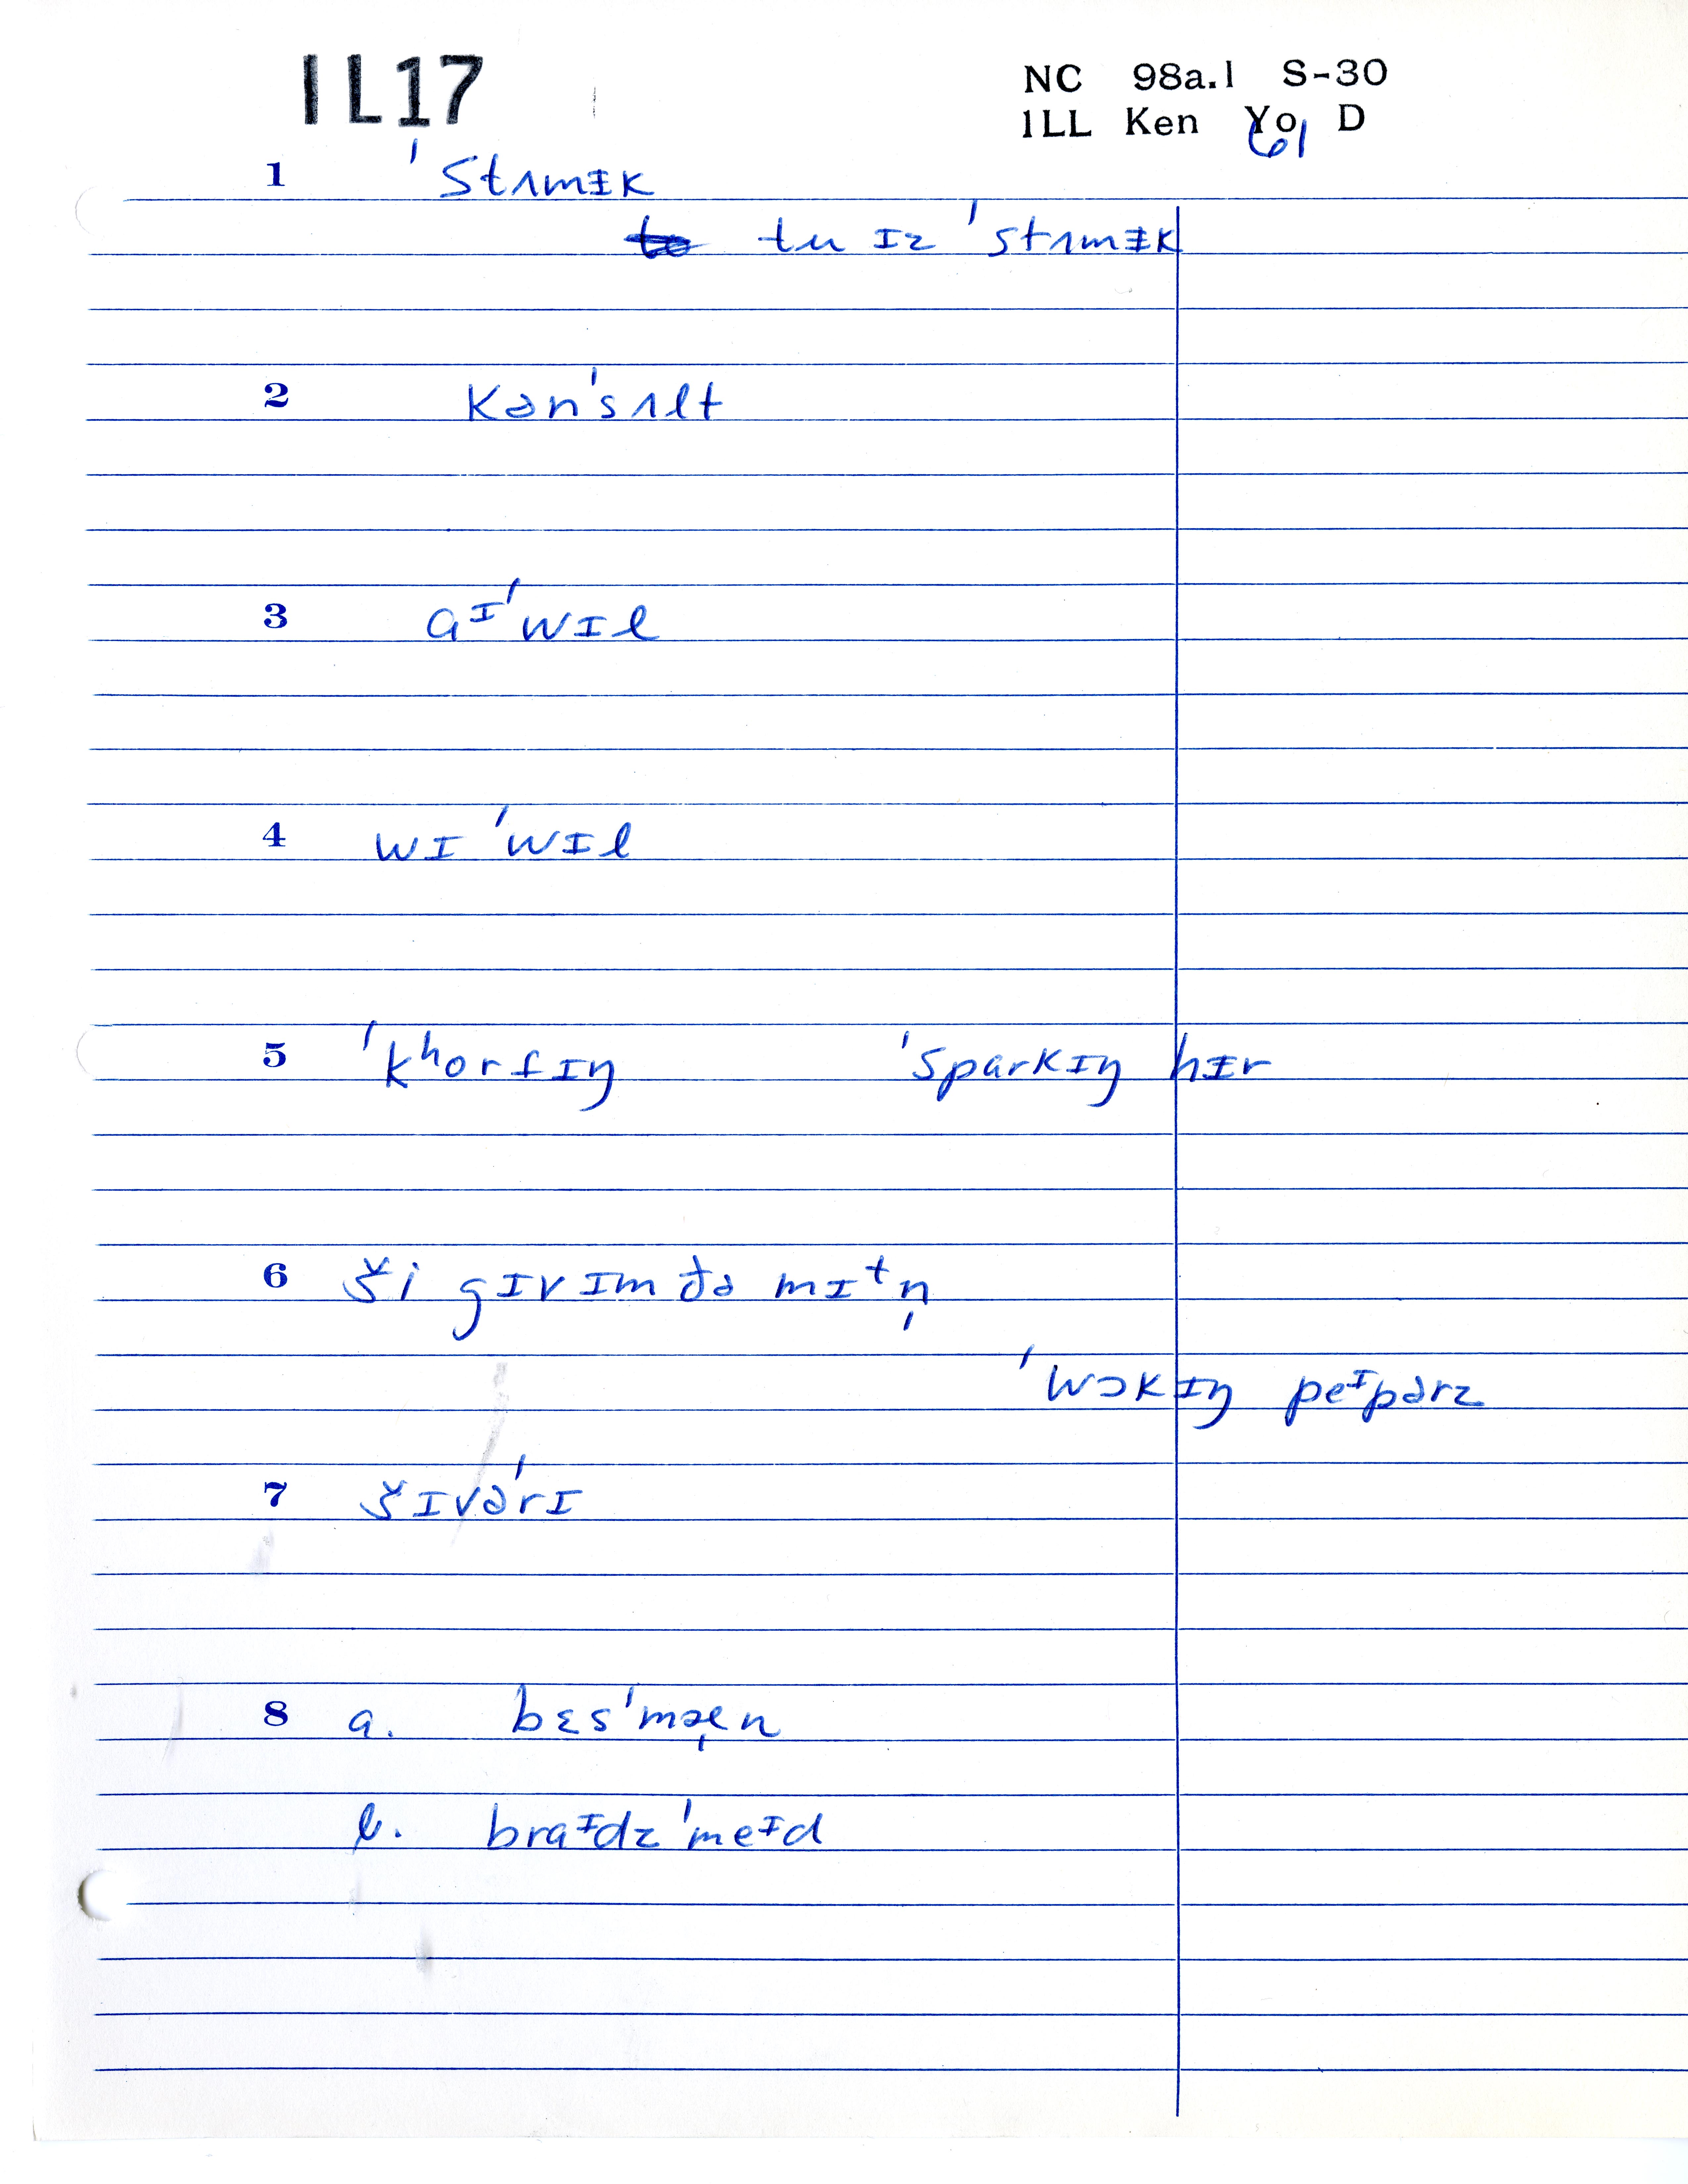 IL17
NC 98a.1 S-30
ILL Ken Yo D
61
1 ˈstʌmɪ̵k
tu ɪz ˈstʌmɪ̵k
2 kənˈsʌlt
3 aᶦˈwɪl
4 wɪ ˈwɪl
5 ˈkʰorfɪŋ ˈsparkɪŋ hɪ̵r
6 ši gɪvɪm ðə mɪᵗn̩
ˈwɔkɪŋ peᶦpərz
7 šɪvəˈrɪ
8 a. bɛsˈmæ̩n
b. braᶦ̵dzˈmeᶦ̵d